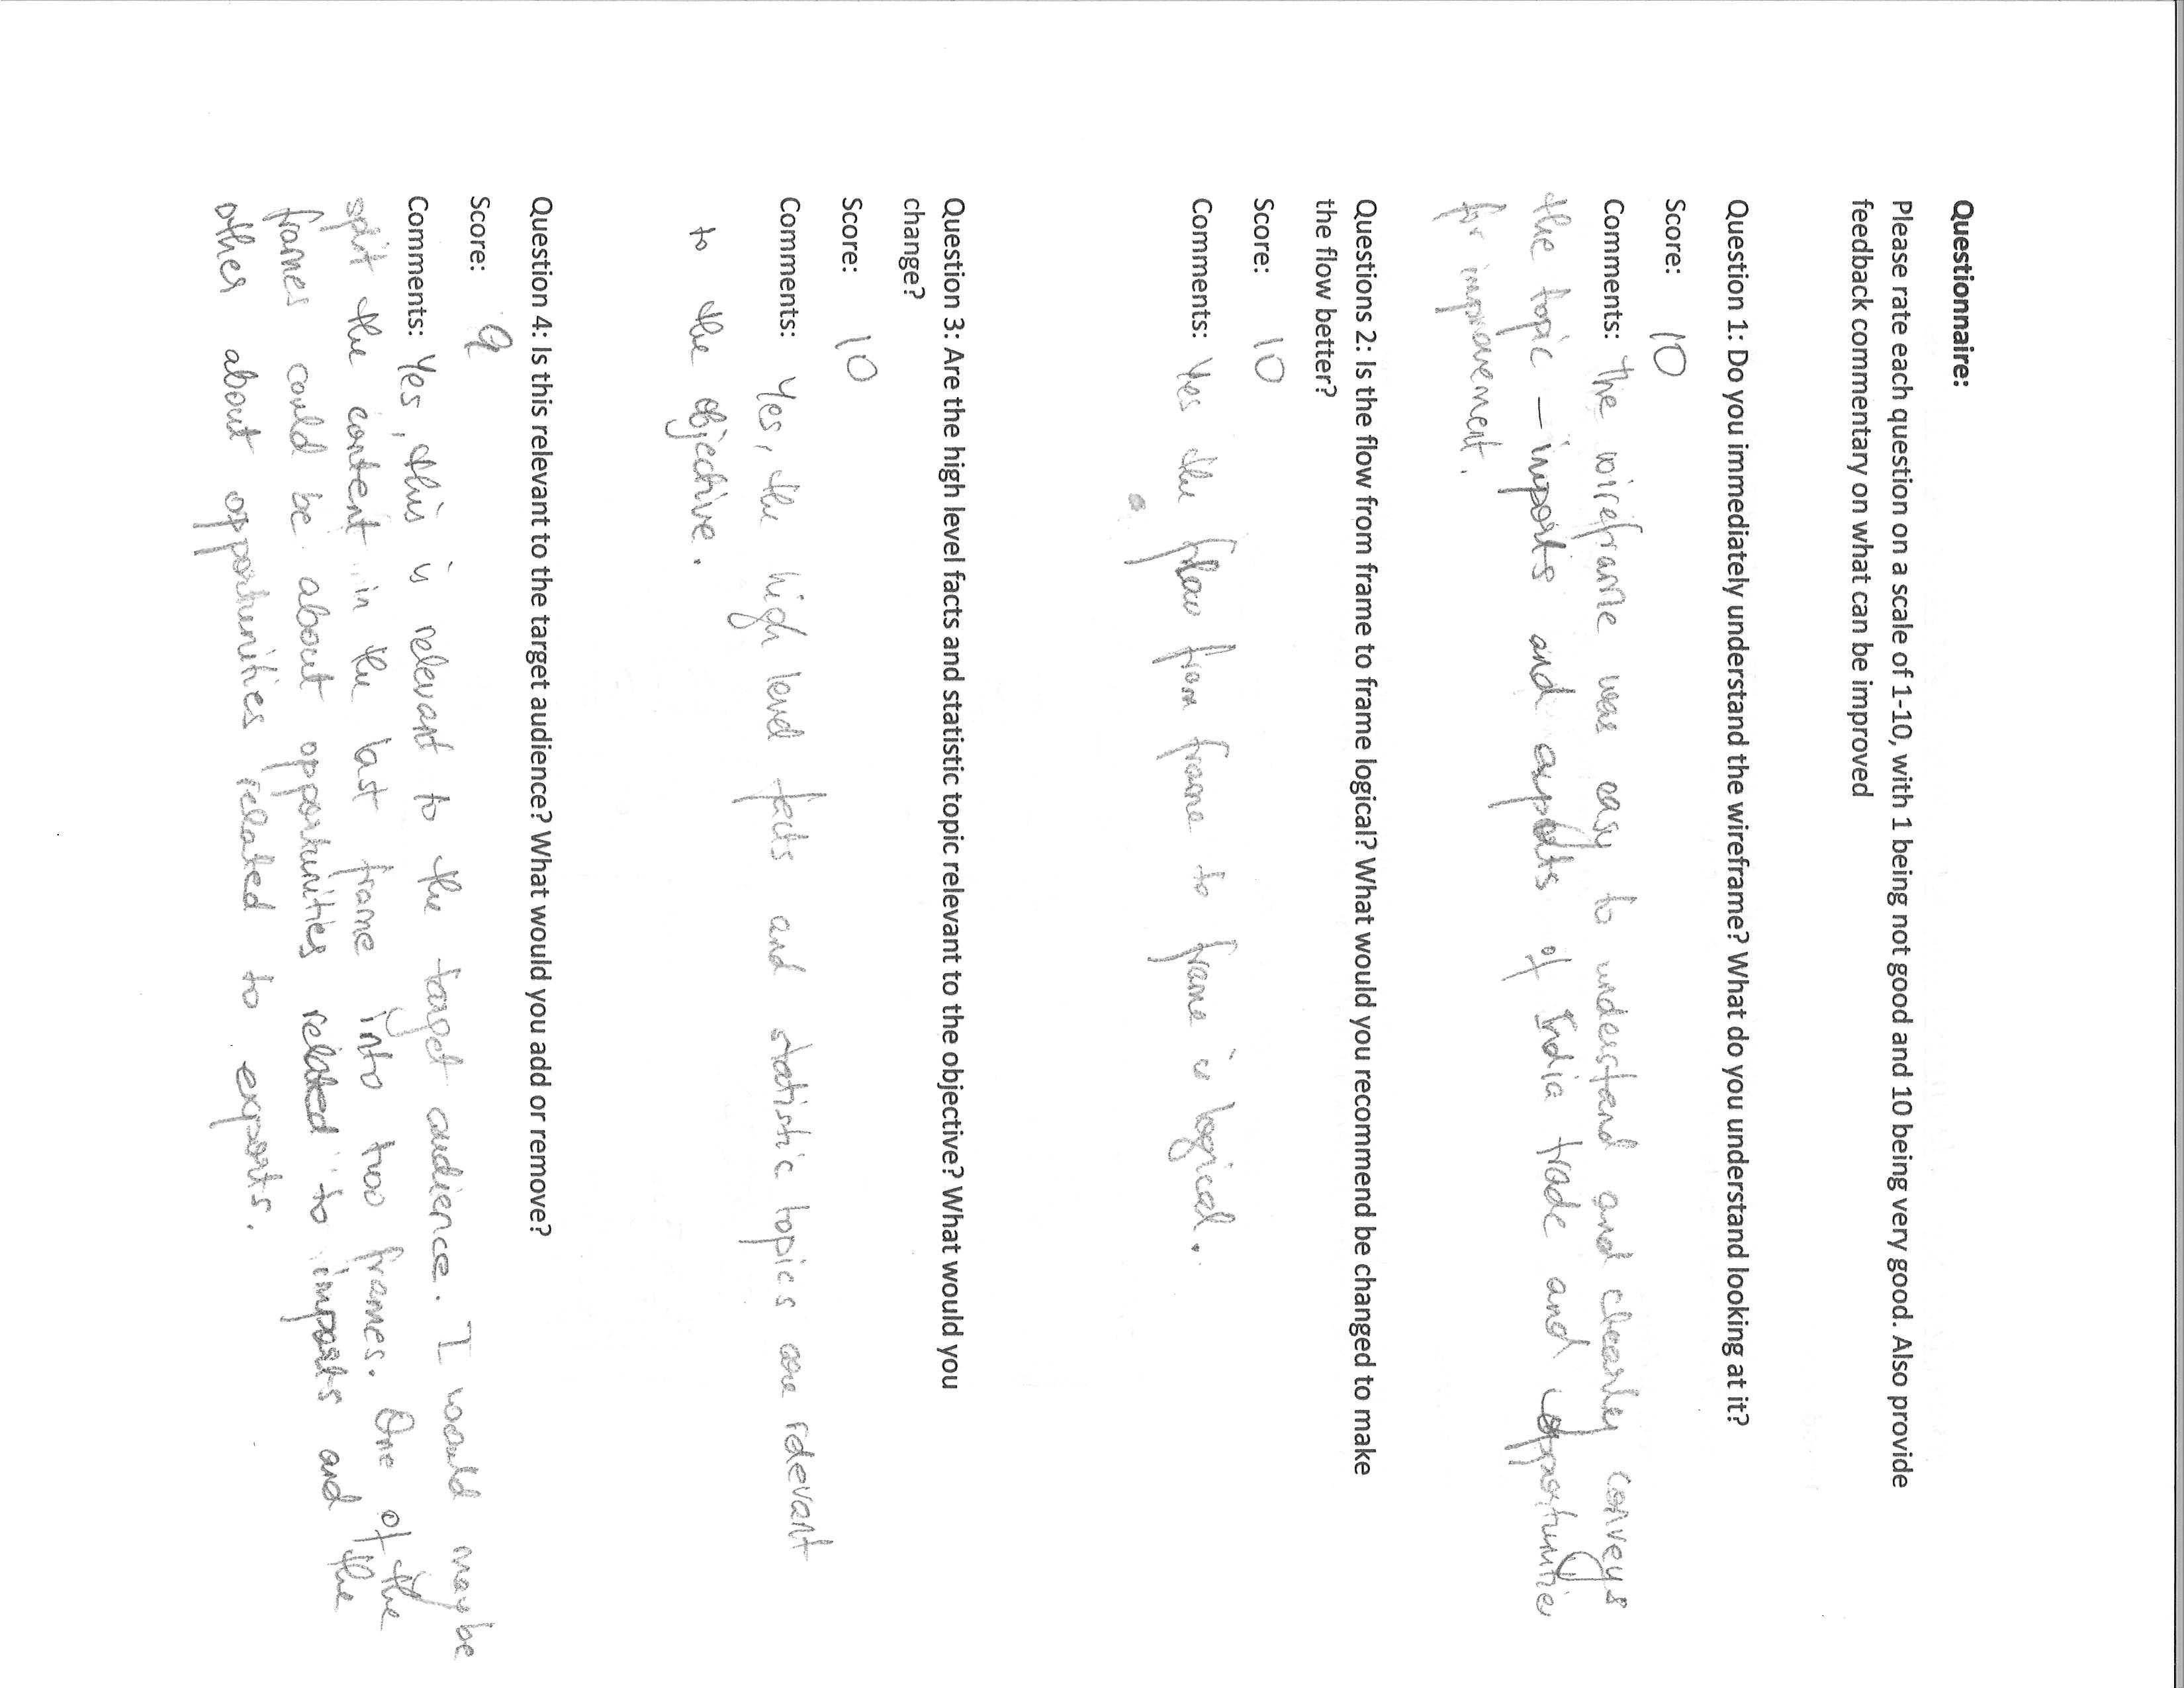 Questionnaire:
Please rate each question on a scale of 1-10, with 1 being not good and 10 being very good. Also provide
feedback commentary on what can be improved
Question 1: Do you immediately understand the wireframe? What do you understand looking at it?
Score: 10
Comments: The wireframe was easy to understand and clearly conveys
the topic – imports and exports of India trade and opportunities
for improvement.
Questions 2: Is the flow from frame to frame logical? What would you recommend be changed to make
the flow better?
Score: 10
Comments: Yes the flow from frame to frame is logical.
Question 3: Are the high level facts and statistic topic relevant to the objective? What would you
change?
Score: 10
Comments: Yes, the high level facts and statistic topics are relevant
to the objective.
Question 4: Is this relevant to the target audience? What would you add or remove?
Score: 9
Comments: Yes, this is relevant to the target audience. I would maybe
split the content in the last frame into two frames. One of the
frames could be about opportunities related to imports and the
other about opportunities related to exports.